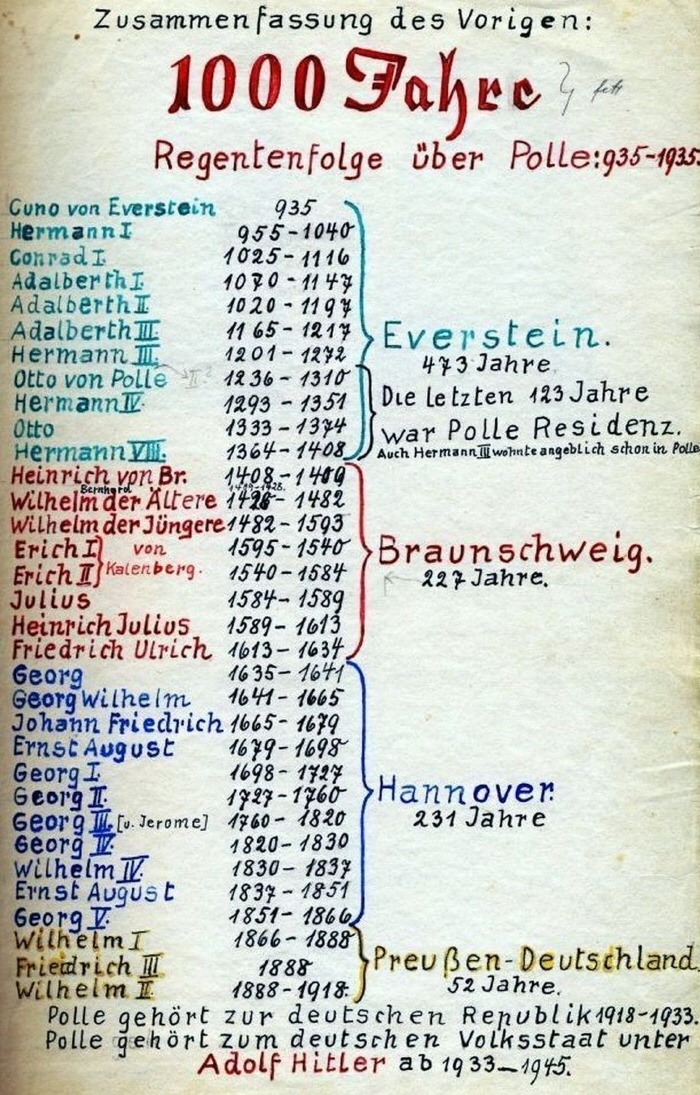 Zusammenfassung des Vorigen:
1000 Jahre
Regentenfolge über Polle: 935-1935.
Cuno von Everstein 935
Hermann I 955-1040
Conrad I. 1025-1116
Adalberth I. 1070-1147
Adalberth II 1020-1197
Adalberth III. 1165-1217
Hermann III. 1201-1272
Everstein.
473 Jahre
Otto von Polle II? 1236-1310
Hermann IV. 1293-1351
Otto 1333-1374
Hermann VIII. 1364-1408
Die letzten 123 Jahre
war Polle Residenz.
Auch Hermann III wohnte angeblich schon in Polle
Heinrich von Br. 1408-1409
Bernhard
Wilhelm der Ältere 1428-1482
Wilhelm der Jüngere 1482-1593
Erich I. 1595-1540
Erich II. 1540-1584
von
Kalenberg.
Julius 1584-1589
Heinrich Julius 1589-1613
Friedrich Ulrich 1613-1634
Braunschweig.
227 Jahre.
Georg 1635-1641
Georg Wilhelm 1641-1665
Johann Friedrich 1665-1679
Ernst August 1679-1698
Georg I. 1698-1727
Georg II. 1727-1760
Georg III. [u. Jerome] 1760-1820
Georg IV. 1820-1830
Wilhelm IV. 1830-1837
Ernst August 1837-1851
Georg V. 1851-1866
Hannover.
231 Jahre
Wilhelm I 1866-1888
Friedrich III 1888
Wilhelm II. 1888-1918.
Preußen-Deutschland.
52 Jahre.
Polle gehört zur deutschen Republik 1918-1933.
Polle gehört zum deutschen Volksstaat unter
Adolf Hitler ab 1933-1945.